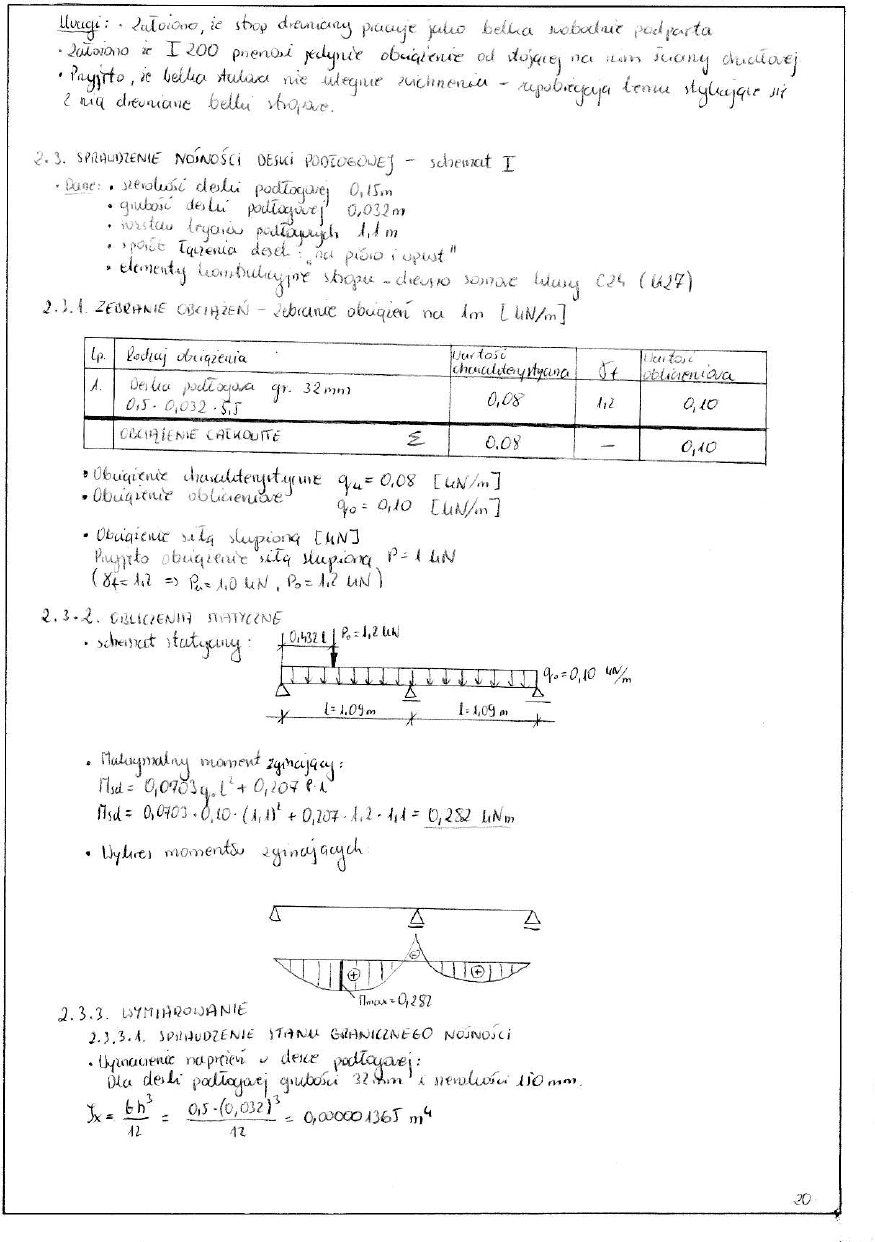 Uwagi: • Założono, że strop drewniany pracuje jako belka swobodnie podparta
• Założono że I 200 przenosi jedynie obciążenie od stojącej na nim ściany działowej
• Przyjęto, że belka stalowa nie ulegnie zwichrzeniu – zapobiegają temu stykające się
z nią drewniane belki stropowe.
2.3. SPRAWDZENIE NOŚNOŚCI DESKI PODŁOGOWEJ – schemat I
• Dane: • szerokość deski podłogowej 0,15m
• grubość deski podłogowej 0,032m
• rozstaw legarów podłogowych 1,1m
• sposób łączenia desek: „na pióro i wpust"
• elementy konstrukcyjne stropu – drewno sosnowe klasy C24 (K27)
2.3.1. ZEBRANIE OBCIĄŻEŃ – zebranie obciążeń na 1m [kN/m]
Lp. Rodzaj obciążenia Wartość charakterystyczna γf Wartość obliczeniowa
1. Deska podłogowa gr. 32mm
0,5 · 0,032 · 5,5 0,08 1,2 0,10
OBCIĄŻENIE CAŁKOWITE Σ 0,08 – 0,10
• Obciążenie charakterystyczne qk = 0,08 [kN/m]
• Obciążenie obliczeniowe qo = 0,10 [kN/m]
• Obciążenie siłą skupioną [kN]
Przyjęto obciążenie siłą skupioną P = 1 kN
(γf = 1,2 => Pk = 1,0 kN, Po = 1,2 kN)
2.3.2. OBLICZENIA STATYCZNE
• schemat statyczny:
0,432 l Po = 1,2 kN
qo = 0,10 kN/m
l = 1,09m l = 1,09m
• Maksymalny moment zginający:
Msd = 0,0703 qo l² + 0,207 P·l
Msd = 0,0703 · 0,10 · (1,1)² + 0,207 · 1,2 · 1,1 = 0,282 kNm
• Wykres momentów zginających
⊖
⊕ ⊕
Mmax = 0,282
2.3.3. WYMIAROWANIE
2.3.3.1. SPRAWDZENIE STANU GRANICZNEGO NOŚNOŚCI
• Wyznaczenie naprężeń w desce podłogowej:
Dla deski podłogowej grubości 32mm i szerokości 150 mm.
Jx = bh³/12 = 0,5·(0,032)³/12 = 0,000001365 m⁴
20